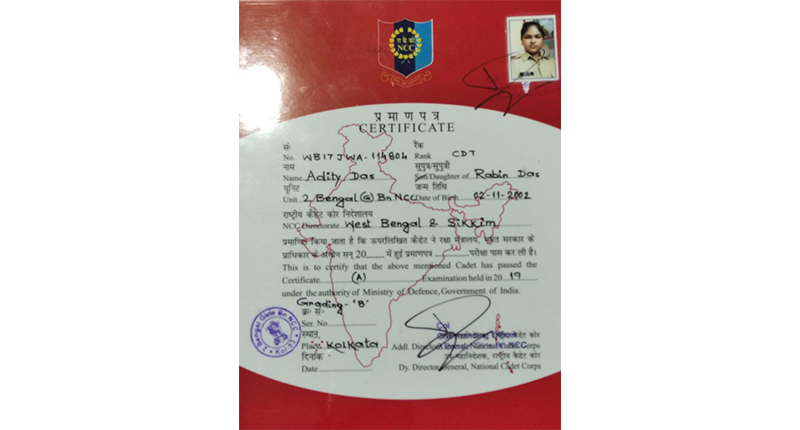 रा कै को
NCC
प्रमाणपत्र
CERTIFICATE
सं॰ रैंक
No. WB17JWA-114804 Rank CDT
नाम सुपुत्र/सुपुत्री
Name Adity Das Son/Daughter of Rabin Das
यूनिट जन्म तिथि
Unit 2 Bengal (G) Bn NCC Date of Birth 02-11-2002
राष्ट्रीय कैडेट कोर निदेशालय
NCC Directorate West Bengal & Sikkim
प्रमाणित किया जाता है कि ऊपरलिखित कैडेट ने रक्षा मंत्रालय, भारत सरकार के
प्राधिकार के अधीन सन् 20 में हुई प्रमाणपत्र परीक्षा पास कर ली है।
This is to certify that the above mentioned Cadet has passed the
Certificate (A) Examination held in 2019
under the authority of Ministry of Defence, Government of India.
Grading - 'B'
क्र॰ सं॰
Ser. No.
स्थान
Place Kolkata
दिनांक
Date
2 Bengal Girls Bn NCC
Col
Addl. Director General, National Cadet Corps
उप-महानिदेशक, राष्ट्रीय कैडेट कोर
Dy. Director General, National Cadet Corps